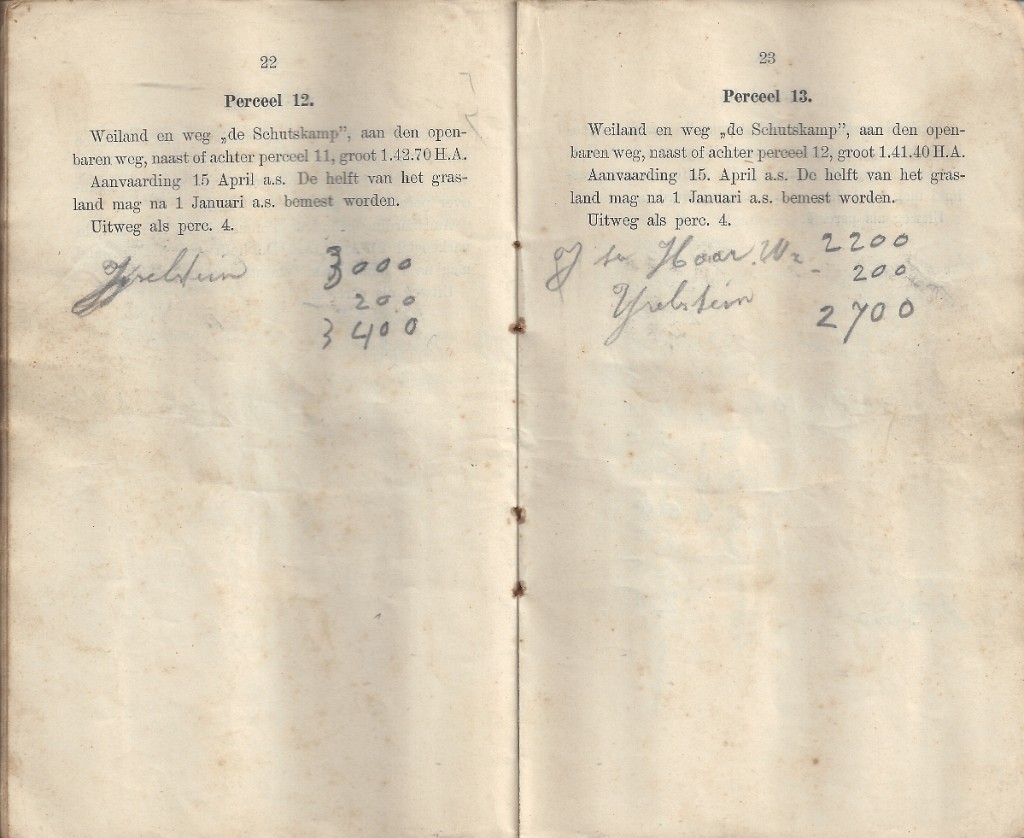 22
Perceel 12.
Weiland en weg „de Schutskamp”, aan den open-
baren weg, naast of achter perceel 11, groot 1.42.70 H.A.
Aanvaarding 15 April a.s. De helft van het gras-
land mag na 1 Januari a.s. bemest worden.
Uitweg als perc. 4.
Yselstein 3000
200
3400
23
Perceel 13.
Weiland en weg „de Schutskamp”, aan den open-
baren weg, naast of achter perceel 12, groot 1.41.40 H.A.
Aanvaarding 15. April a.s. De helft van het gras-
land mag na 1 Januari a.s. bemest worden.
Uitweg als perc. 4.
J ter Haar. Wz 2200
- 200
Yselstein 2700